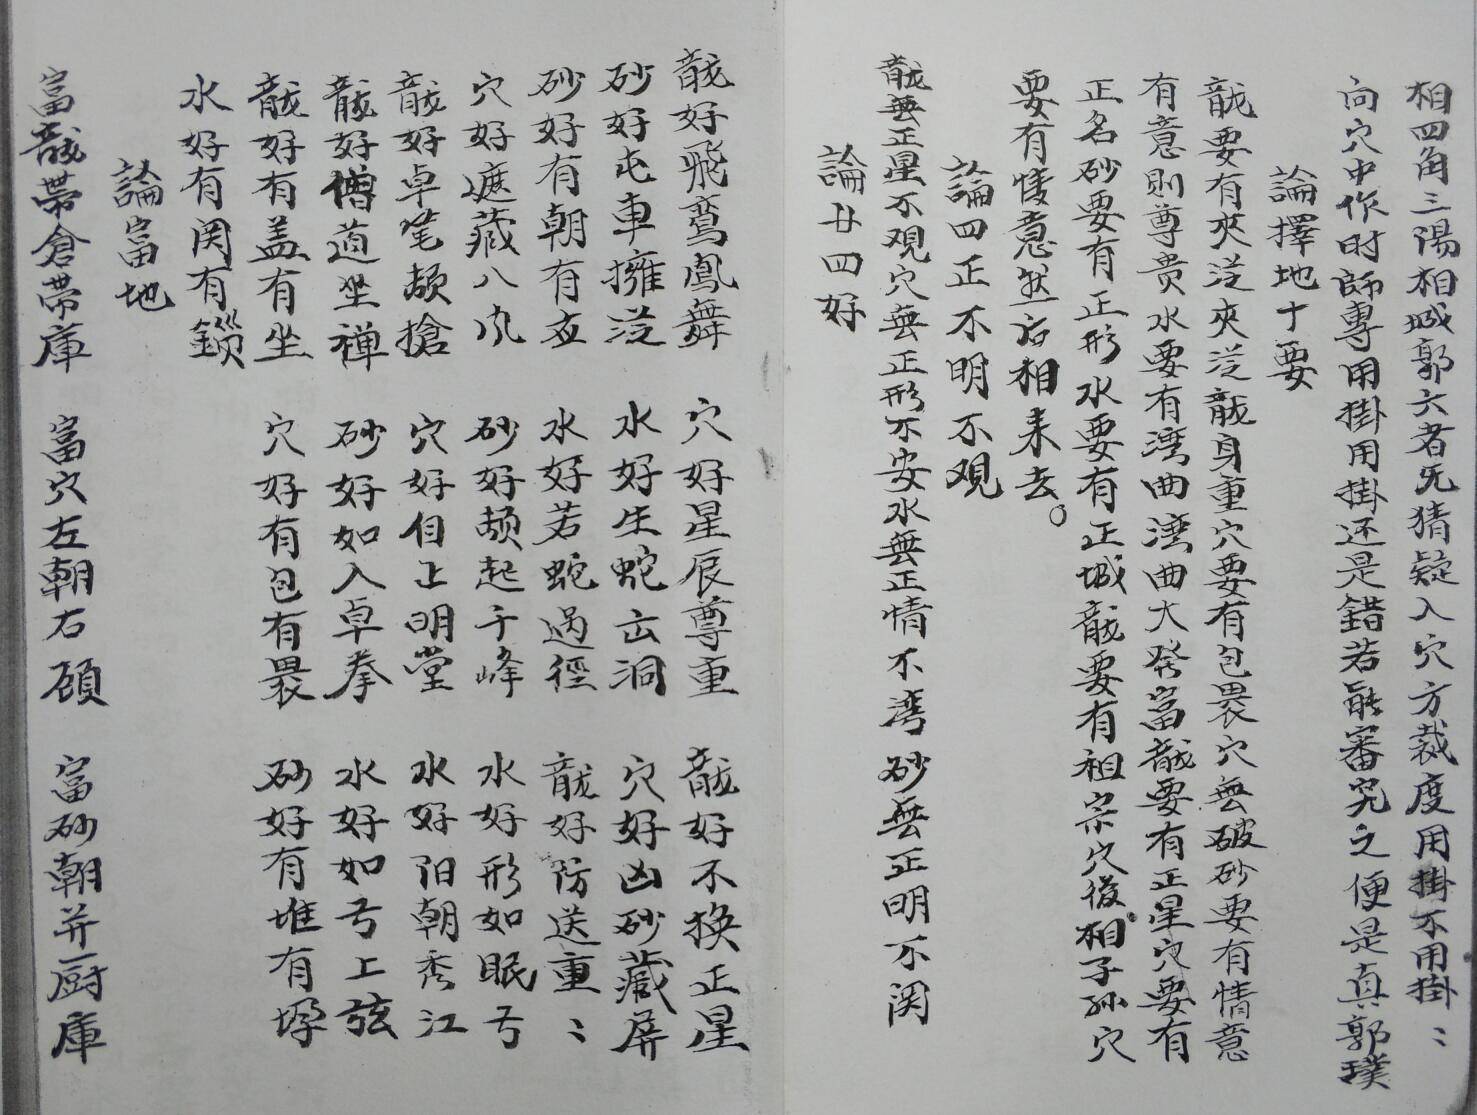 相四角三陽相城郭六者旡猜疑入穴方裁度用掛不用掛〻
向穴中作时師專用掛用掛还是錯若能審究之便是真郭璞
論擇地十要
龍要有夾送夾送龍身重穴要有包畏穴無破砂要有情意
有意則尊贵水要有湾曲湾曲大發富龍要有正星穴要有
正名砂要有正形水要有正城龍要有祖宗穴後相子孙穴
要有情意然后相来去。
論四正不明不观
龍無正星不观穴無正形不安水無正情不湾砂無正明不関
論廿四好
龍好飛鸞鳳舞 穴好星辰尊重 龍好不换正星
砂好屯車擁送 水好生蛇出洞 穴好凶砂藏屏
砂好有朝有应 水好若蛇過徑 龍好防送重〻
穴好遮藏八风 砂好頓起千峰 水好形如眠弓
龍好卓笔頓搶 穴好自上明堂 水好阳朝秀江
龍好僧道坐禅 砂好如入卓拳 水好如弓上弦
龍好有盖有坐 穴好有包有畏 砂好有堆有墩
水好有関有鎖
論富地
富龍帶倉帶庫 富穴左朝右顾 富砂朝并厨庫